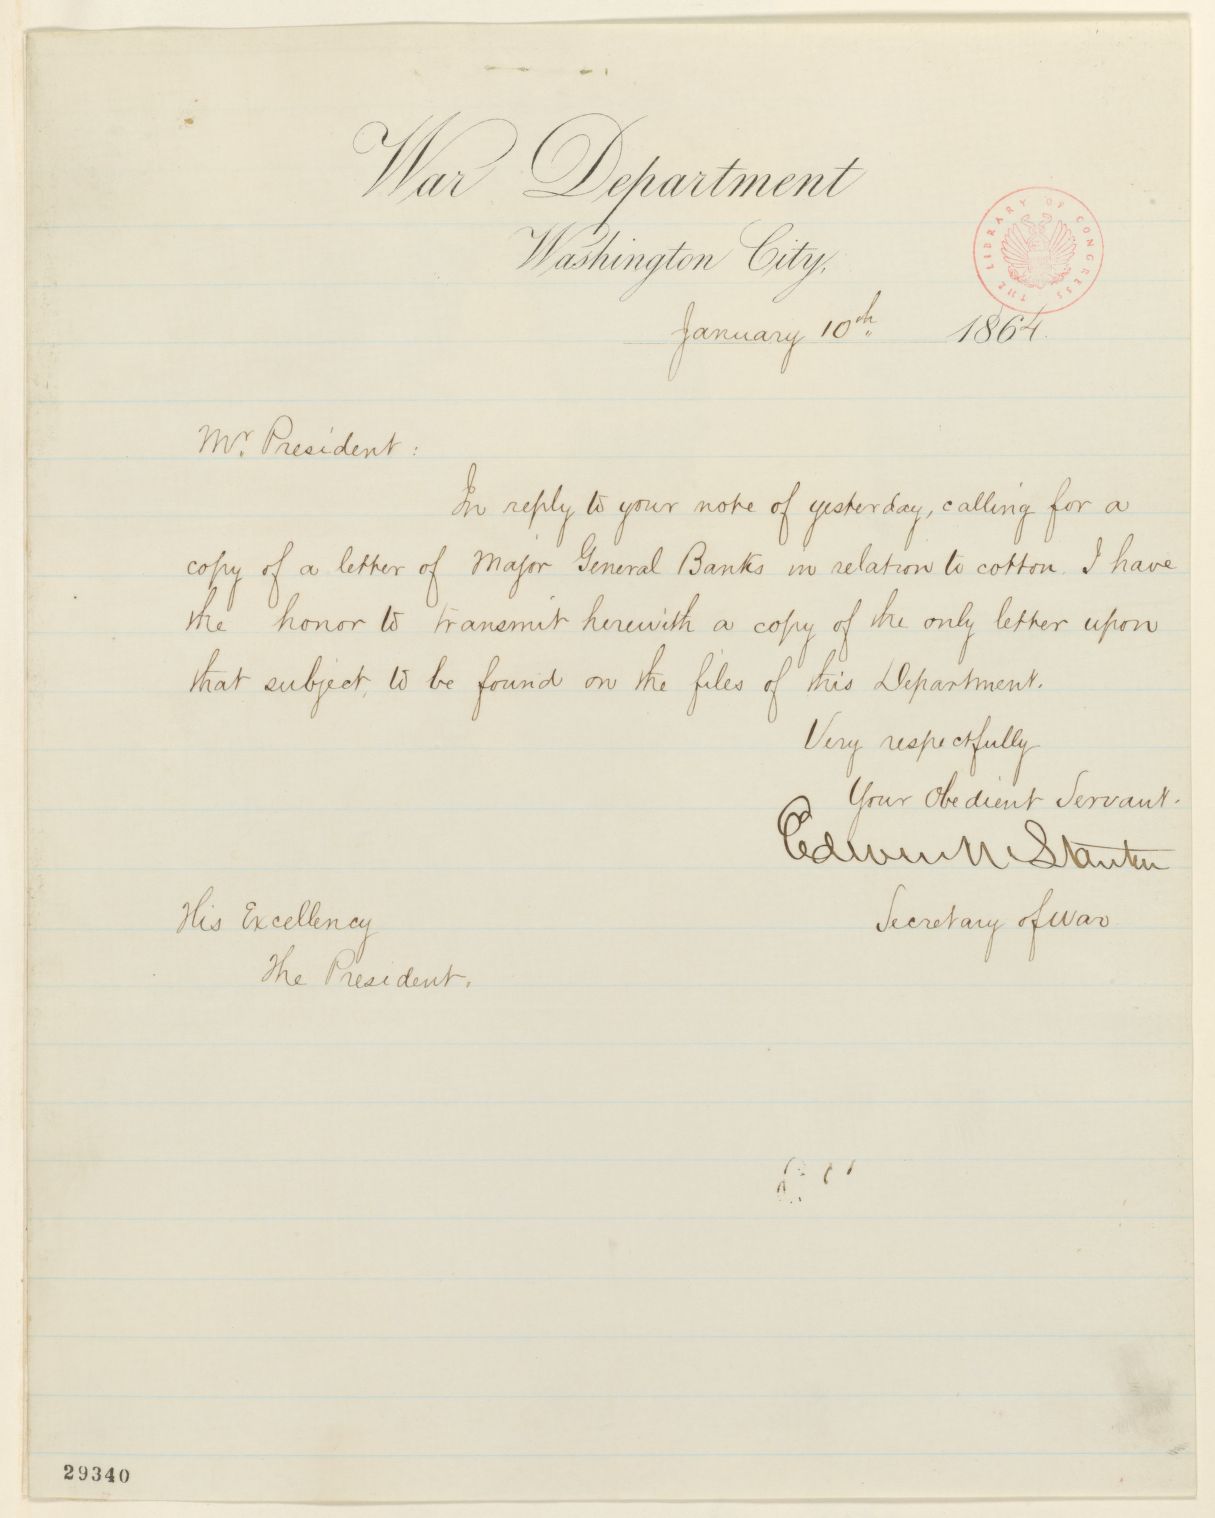 War Department
Washington City,
THE LIBRARY OF CONGRESS
January 10th 1864.
Mr. President:
In reply to your note of yesterday, calling for a
copy of a letter of Major General Banks in relation to cotton. I have
the honor to transmit herewith a copy of the only letter upon
that subject, to be found on the files of this Department.
Very respectfully
Your Obedient Servant.
Edwin M Stanton
Secretary of War
His Excellency
The President.
29340